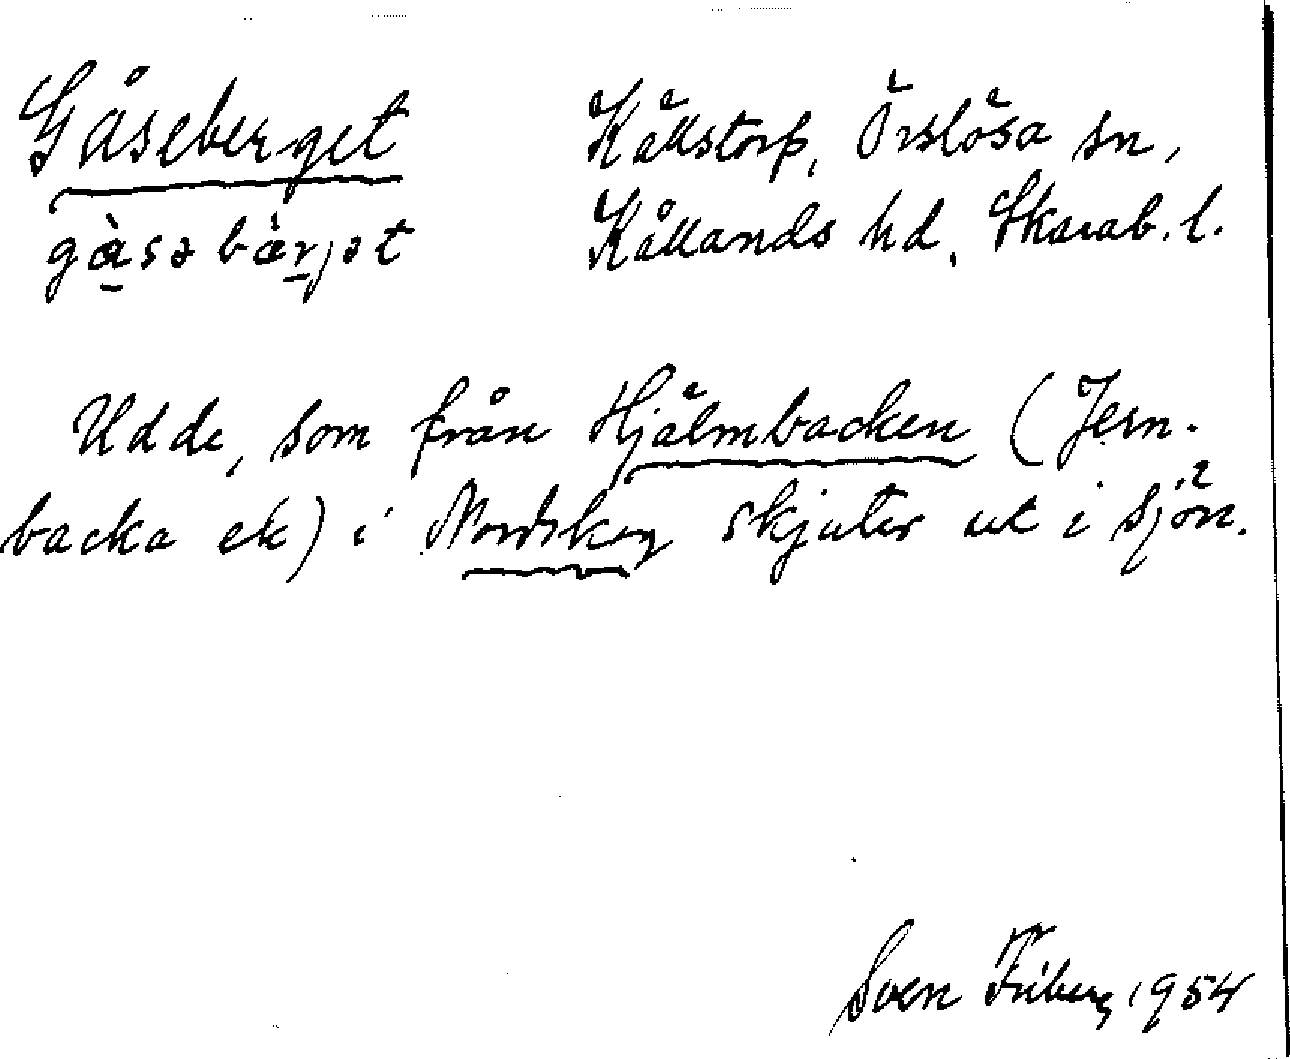 Gåseberget
Källstorp, Örslösa sn,
gàsəbæ̀rjət
Kållands hd, Skarab. l.
Udde, som från Hjälmbacken (Jern-
backa ek) i Nordskog skjuter ut i sjön.
Sven Friberg 1954